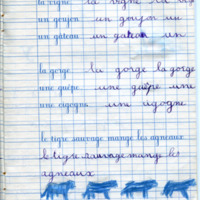 la vigne la vigne la vig
un goujon un goujon un
un gateau un gateau un
la gorge la gorge la gorge
une guêpe une guêpe une
une cigogne une cigogne
le tigre sauvage mange les agneaux
le tigre sauvage mange les
agneaux